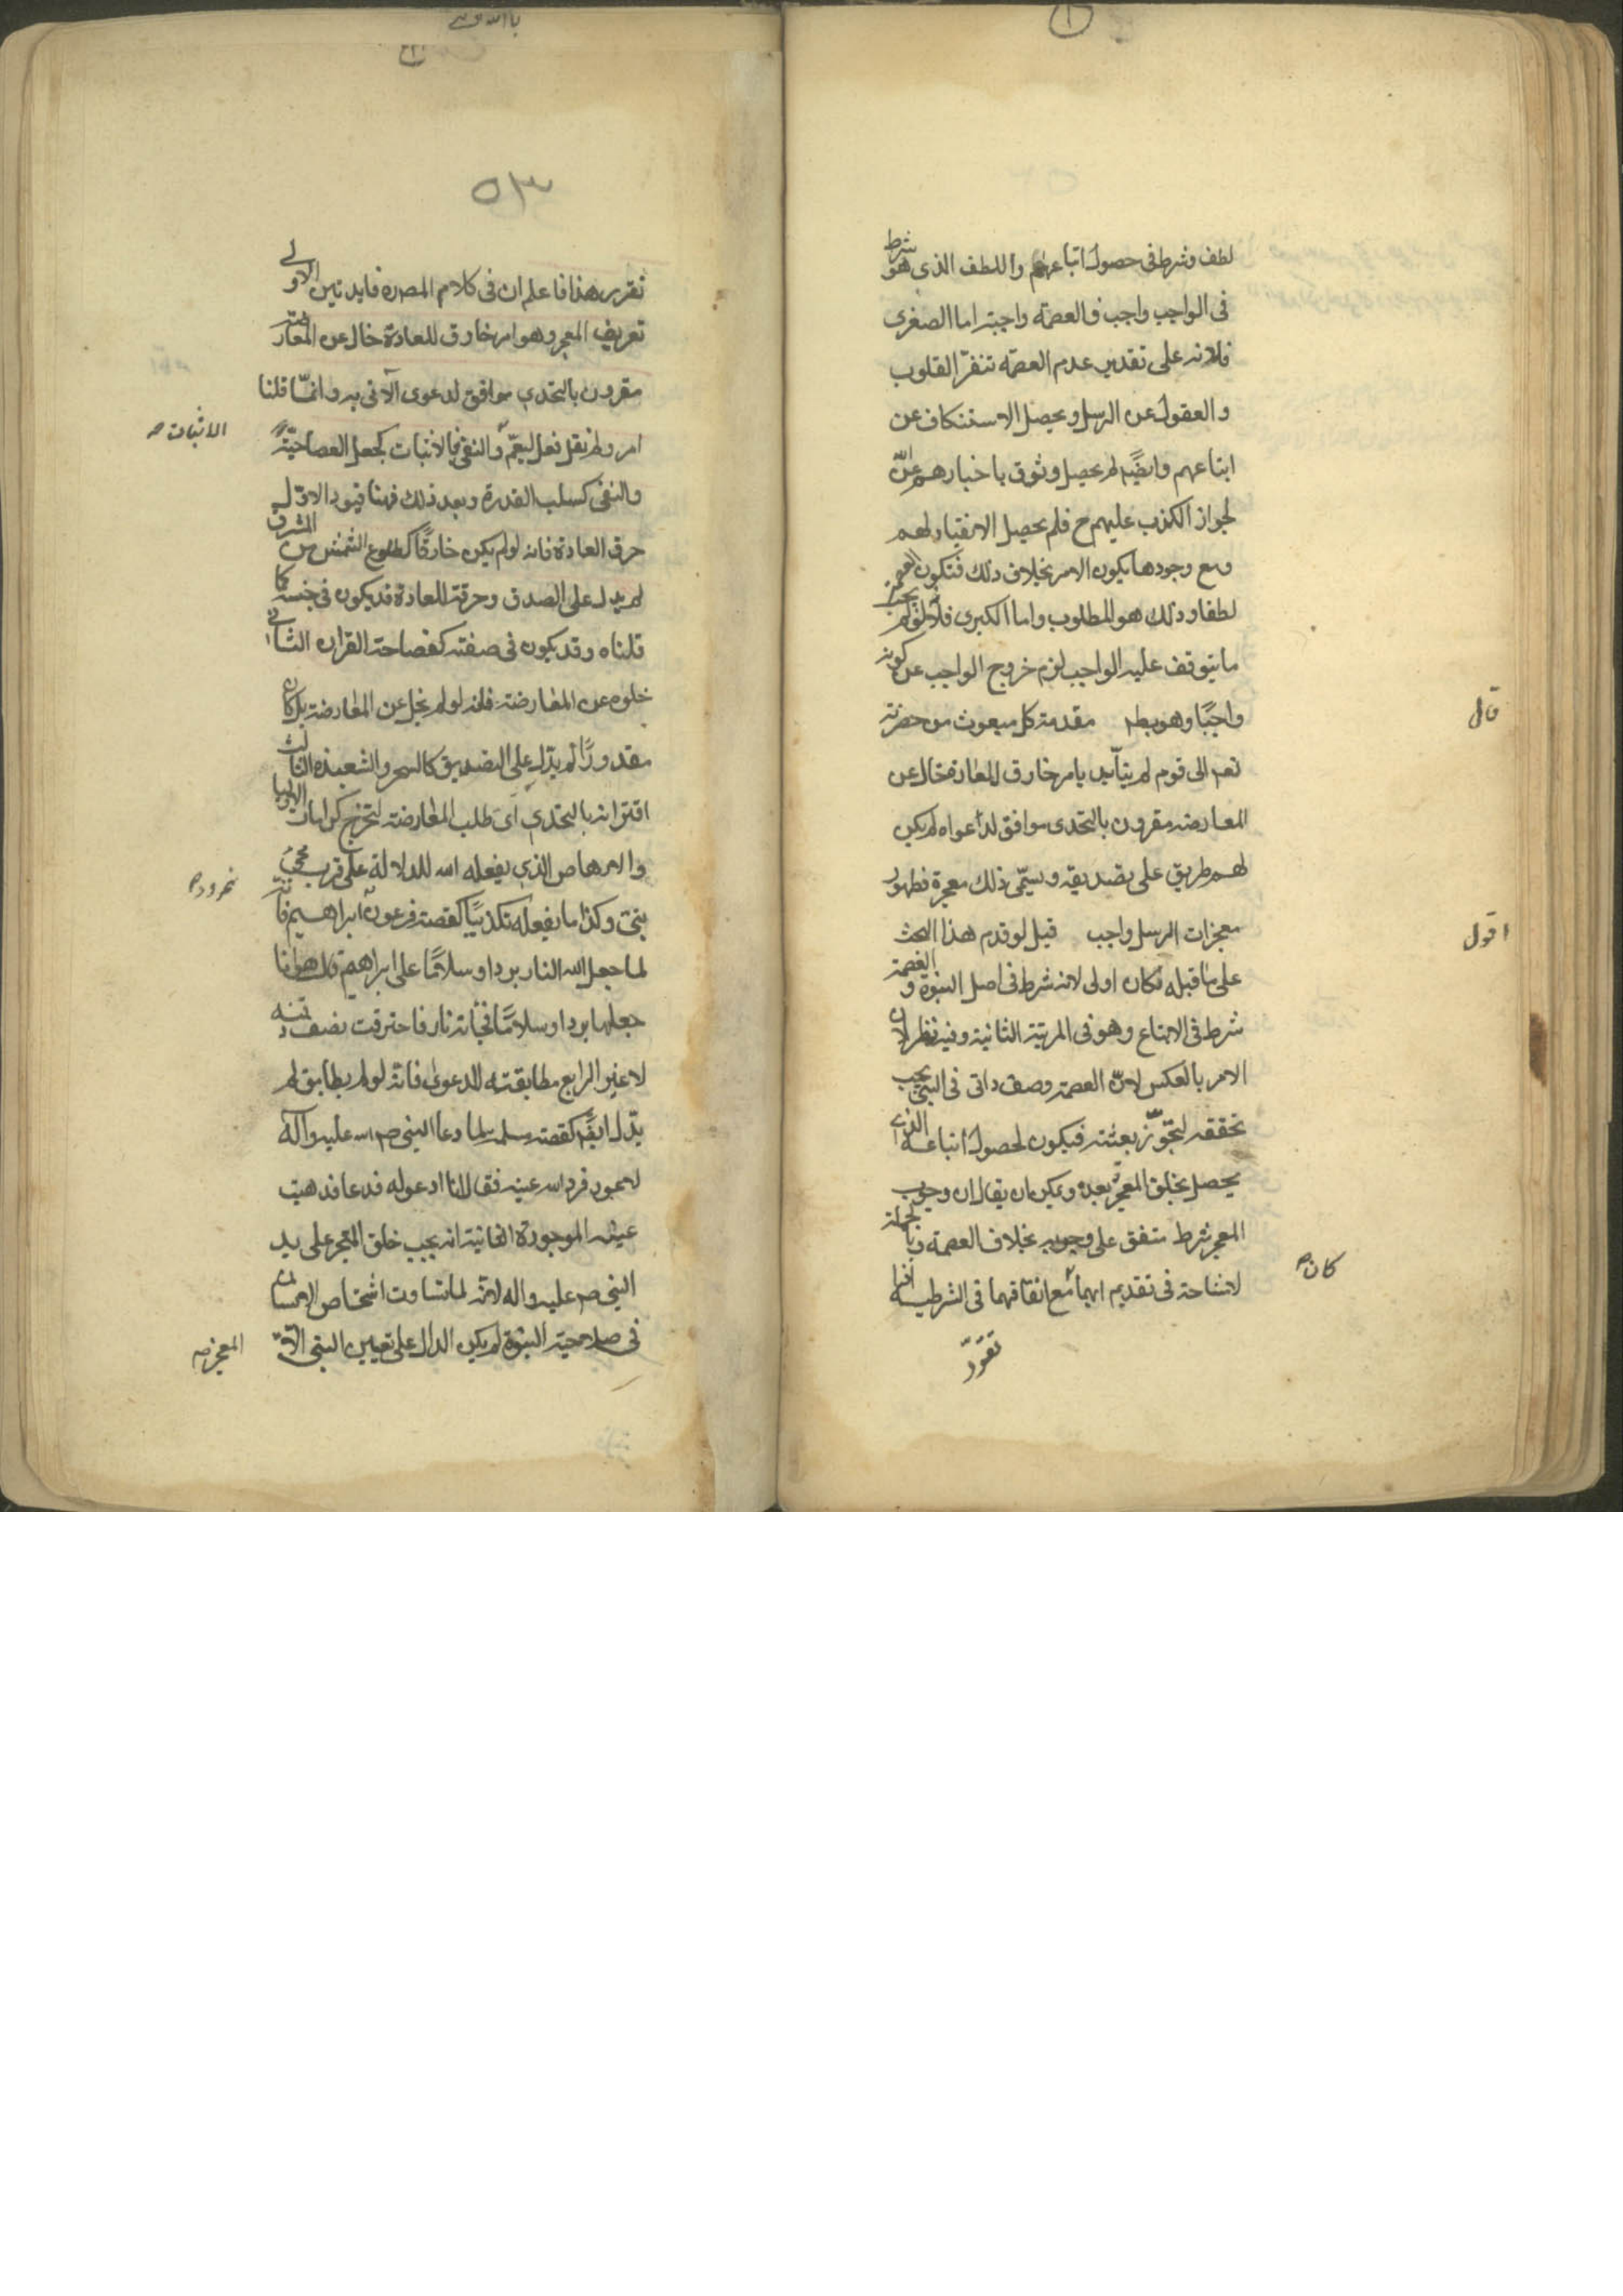 لطف وشرط فى حصول اتباعهم واللطف الذى هو شرط
فى الواجب واجب فالعصمة واجبة اما الصغرى
فلانه على تقدير عدم العصمة تنفر القلوب
والعقول عن الرسل ويحصل الاستنكاف عن
اتباعهم وايضًا لم يحصل وثوق باخبارهم
لجواز الكذب عليهم ح فلم يحصل الانقياد لهم
ومع وجودها يكون الامر بخلاف ذلك فتكون العصمة
لطفا وذلك هو المطلوب واما الكبرى فلانه لو لم يجب
ما يتوقف عليه الواجب لزم خروج الواجب عن كونه
قال
واجبًا وهو بط مقدمة كل مبعوث من حضرته
تعم الى قوم لم يتأيد بامر خارق للعادة خال عن
المعارضة مقرون بالتحدى موافق لدعواه لم يكن
لهم طريق على تصديقه ويسمّى ذلك معجزة فظهور
اقول
معجزات الرسل واجب قيل لو قدم هذا البحث
على ما قبله لكان اولى لانه شرط فى اصل النبوة والعصمة
شرط فى الاتباع وهو فى المرتبة الثانية وفيه نظر لان
الامر بالعكس لانّ العصمة وصف ذاتى فى النبى يجب
تحققه لتجوّز بعثته فيكون لحصول اتباعه الذى
يحصل بخلق المعجز بعده ويمكن ان يقال ان وجوب
المعجز شرط متفق على وجوبه بخلاف العصمة وبالجملة
كان
لا مشاحة فى تقديم ايهما مع اتفاقهما فى الشرطية اذا
تقرر
٥٣
تقرر هذا فاعلم ان فى كلام المصره فايدتين الاولى
تعريف المعجز وهو امر خارق للعادة خال عن المعارضة
مقرون بالتحدى موافق لدعوى الآتى به وانمّا قلنا
الاثبات
امر ولم نقل فعل ليعمّ والنفى فالاثبات كجعل العصا حيّة
والنفى كسلب القدرة وبعد ذلك فهنا قيود الاوّل
خرق العادة فانه لو لم يكن خارقًا كطلوع الشمس من المشرق
لم يدل على الصدق وخرقته العادة قد يكون فى جنسه كما
قلناه وقد يكون فى صفته كفصاحة القران الثانى
خلوه عن المعارضة فانه لو لم يخل عن المعارضة بل كان
مقدورًا لم يدل على التصديق كالسحر والشعبذه الثالث
اقترانه بالتحدى اى طلب المعارضة لتخرج كرامات الاوليا
والارهاص الذى يفعله الله للدلالة على قرب مجئ
نمرود
نبى وكذا ما يفعله تكذيبًا كقصة فرعون ابراهيم فانه
لما جعل الله النار بردا وسلامًا على ابراهيم قال هو انا
جعلها بردا وسلامًا فجأته نار فاحترقت نصف ذقنه
لا غير الرابع مطابقته للدعوى فانه لو لم يطابق لم
يدل ايضًا كقصة مسلمة لما دعا النبى ص اسه عليه وآله
لاعمور فرد الله عينه فقال انا ادعو له فدعا فذهبت
عينه الموجودة الثانية انه يجب خلق المعجز على يد
النبى ص عليه واله لانه لما تساوت اشخاص الانسان
فى صلاحية النبوة لم يكن الدال على تعيين النبى الّا
المعجز